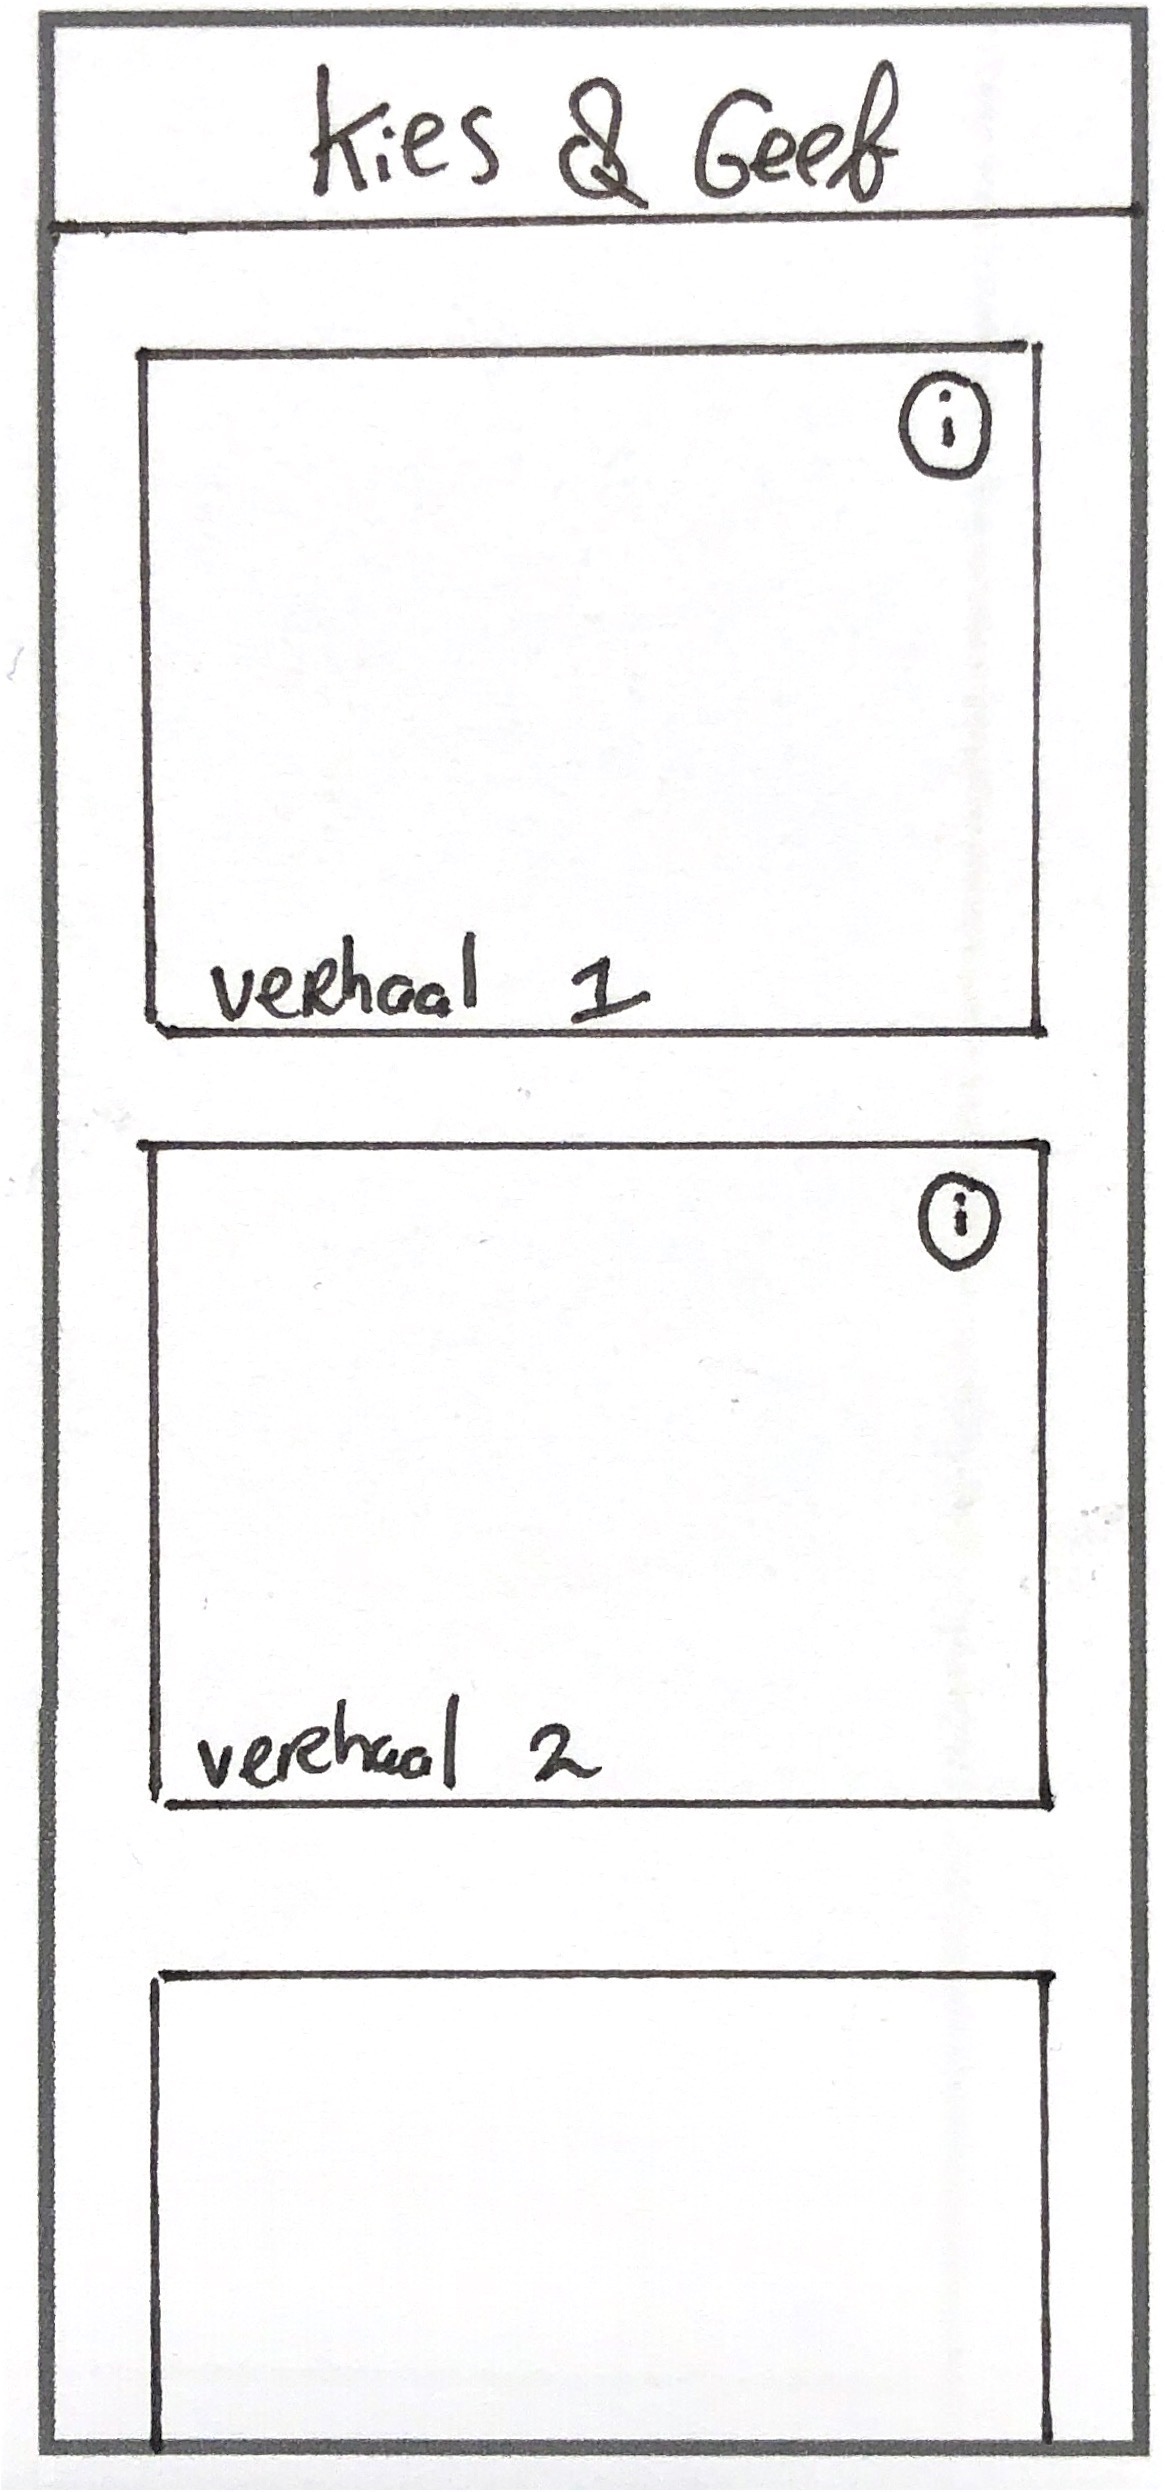 Kies & Geef
i
verhaal 1
i
verhaal 2